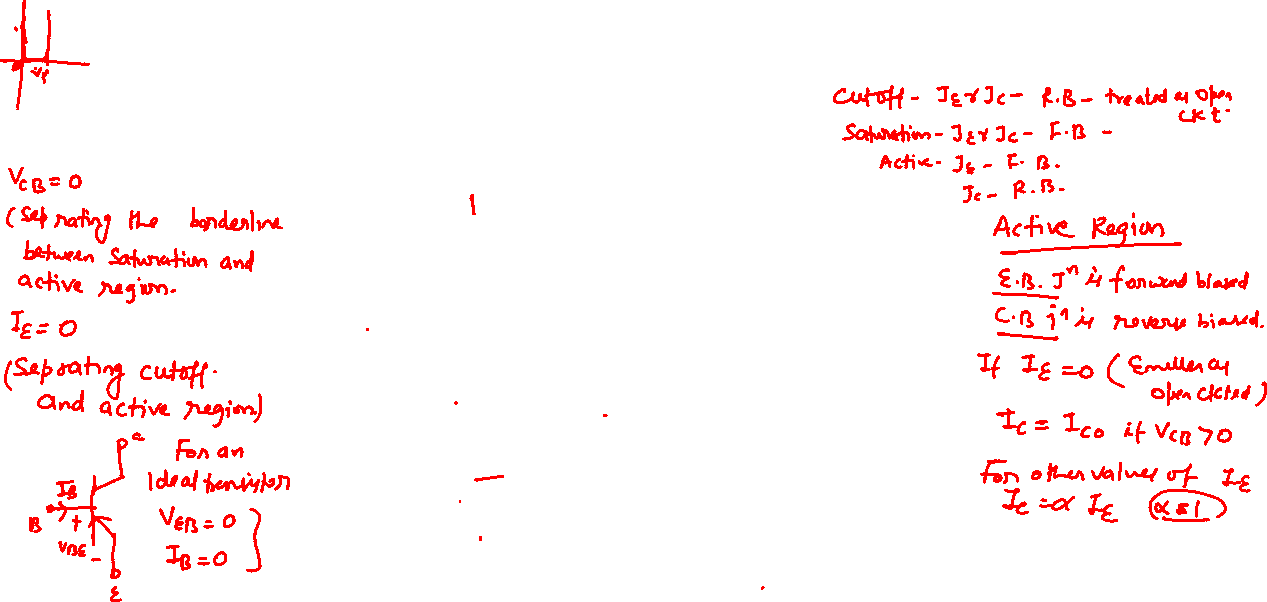 Vγ
V_CB = 0
(Seprating the borderline
between saturation and
active region.
I_E = 0
(Seprating cutoff.
and active region)
For an
Ideal transistor
V_EB = 0
I_B = 0
I_B
B
+
V_BE
-
E
Cutoff - J_E & J_C - R.B - treated as open
ckt.
Saturation - J_E & J_C - F.B -
Active - J_E - F.B.
J_C - R.B.
Active Region
E.B. Jⁿ is forward biased
C.B jⁿ is reverse biased.
If I_E = 0 (Emitter as
open ckted)
I_C = I_CO if V_CB > 0
For other values of I_E
I_C = α I_E α ≅ 1